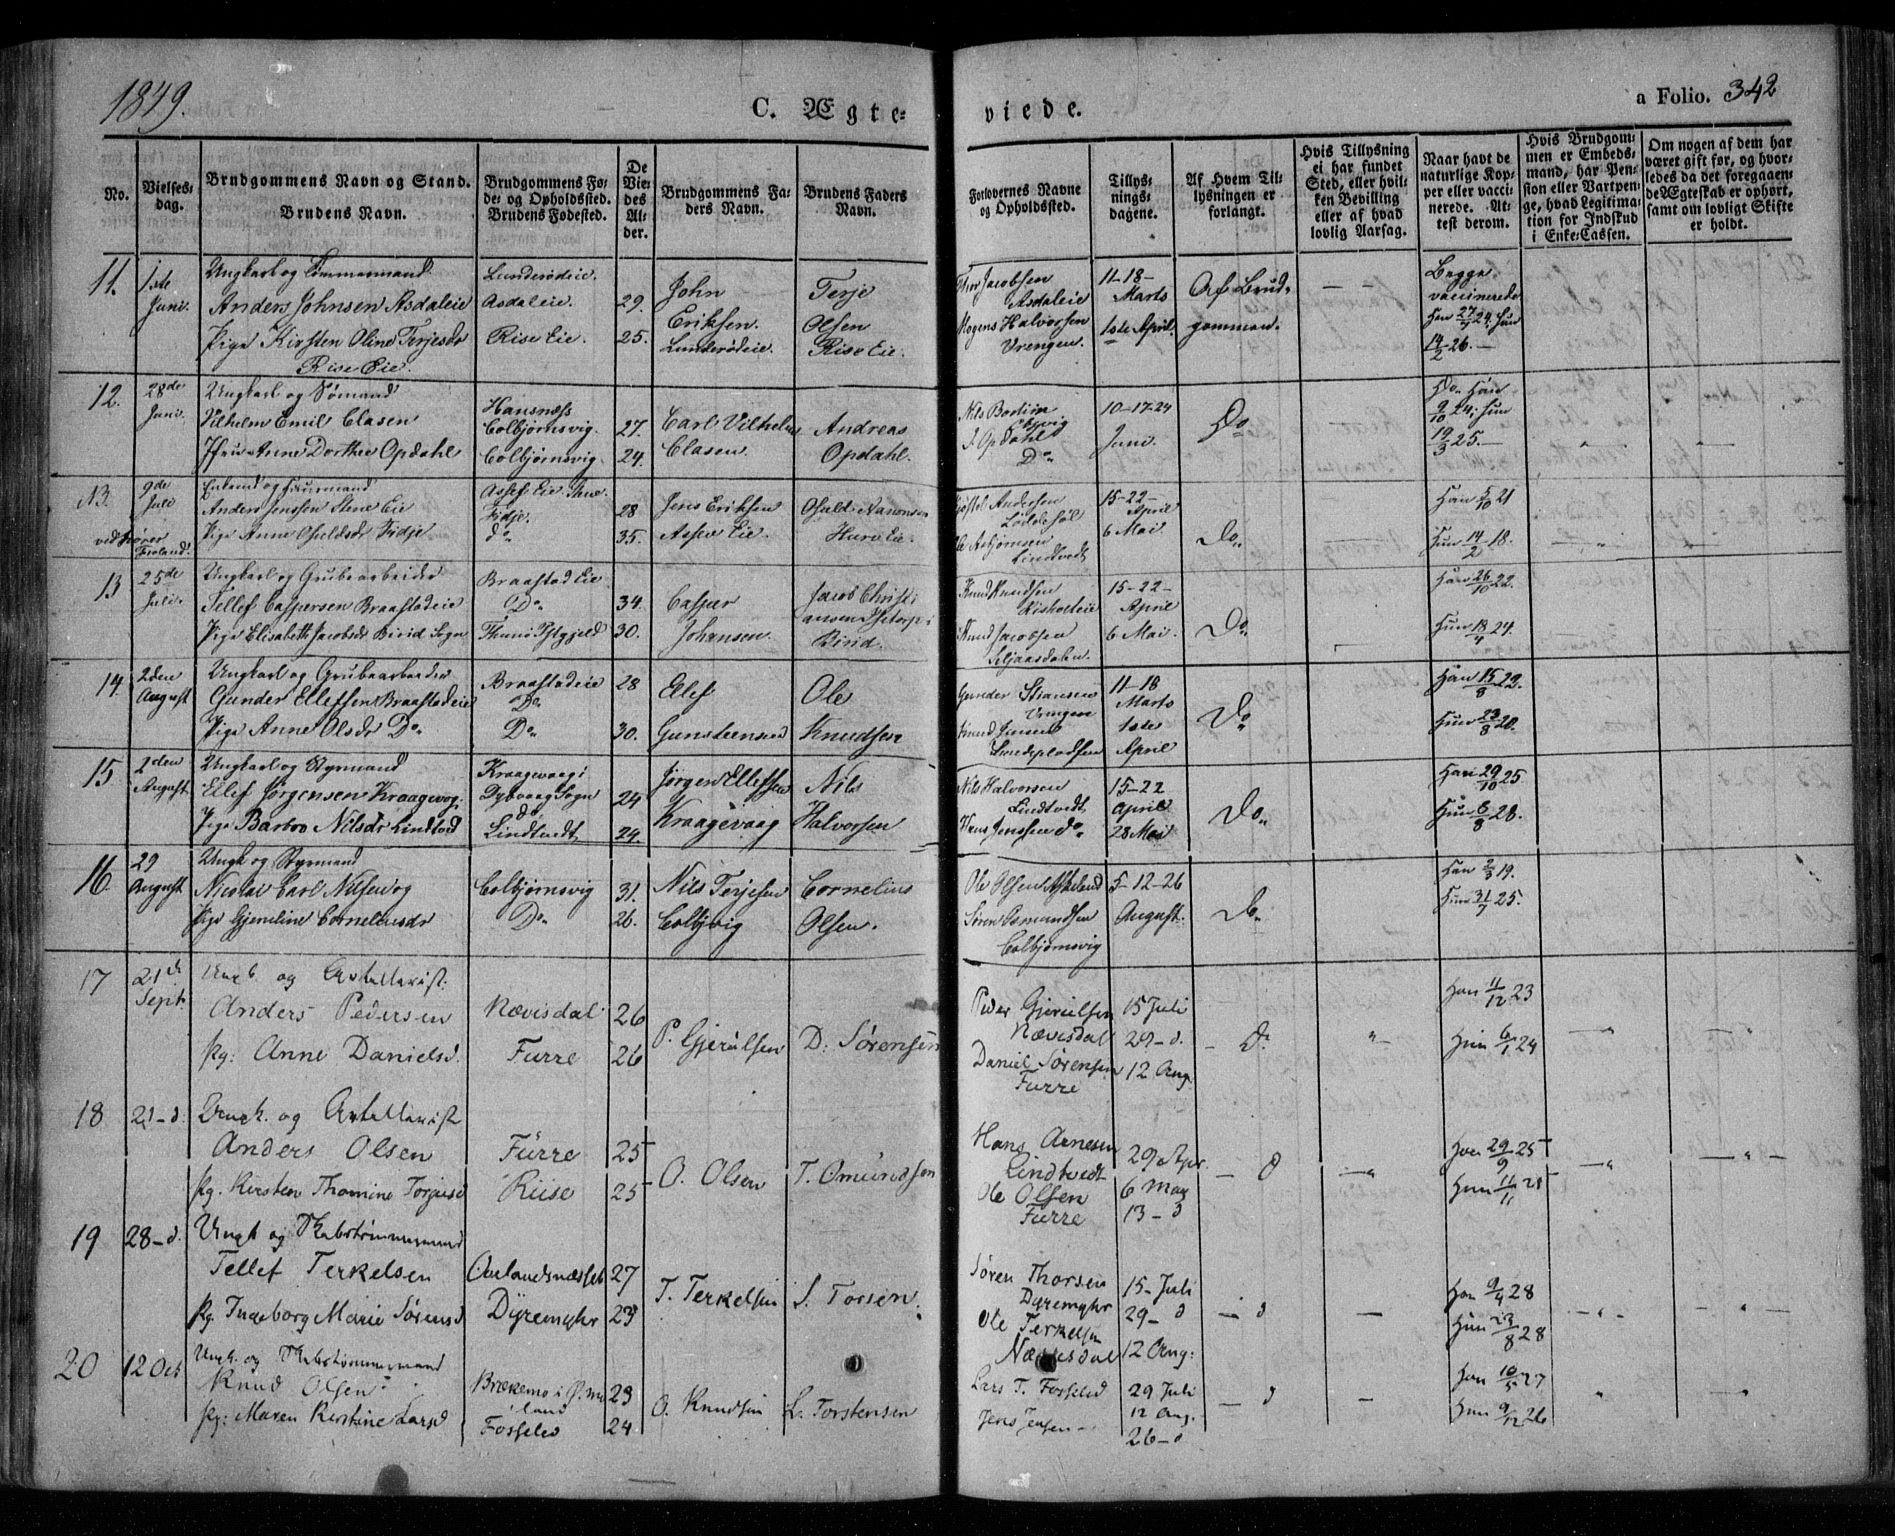 1849.
C. Ægte=
viede.
a Folio. 342
No.
Vielses-
dag.
Brudgommens Navn og Stand.
Brudens Navn.
Brudgommens Fø-
de- og Opholdssted.
Brudens Fødested.
De
Vie-
des
Al-
der.
Brudgommens Fa-
ders Navn.
Brudens Faders
Navn.
Forlovernes Navne
og Opholdssted.
Tillys-
nings-
dagene.
Af Hvem Til-
lysningen er
forlangt.
Hvis Tillysning
ei har fundet
Sted, eller hvil-
ken Bevilling
eller af hvad
lovlig Aarsag.
Naar havt de
naturlige Kop-
per eller vacci-
nerede. At-
test derom.
Hvis Brudgom-
men er Embeds-
mand, har Pen-
sion eller Vartpen-
ge, hvad Legitima-
tion for Indskud
i Enke-Cassen.
Om nogen af dem har
været gift før, og hvor-
ledes da det foregaaen-
de Ægteskab er ophørt,
samt om lovligt Skifte
er holdt.
11. 1ste Juni.
Ungkarl og Tømmermand
Anders Johnsen Asdaleie
Pige Kirsten Oline Terjesdr
Rise Eie.
Lunderødeie.
Asdaleie. 29.
Rise Eie. 25.
John
Eriksen.
Lunderødeie.
Terje
Olsen
Rise Eie.
Thor Jacobsen
Asdaleie
Mogens Halvorsen
Vrengen.
11-18-
Marts
1ste April.
Af Brud-
gommen.
Begge
vaccinerede
Han 27/9 24, hun
14/2 26.
12. 28de Juni.
Ungkarl og Sømand
Vilhelm Emil Clasen
Jfru Anne Dorthee Opdahl
Hansnæss
Colbjørnsvig. 27.
Colbjørnsvig. 24.
Carl Vilhelm
Clasen.
Andreas
Opdahl.
Nils Bastian
Colbjvig
J. Opdahl
Do
10-17-24
Juni.
Do
Do. Han
9/10 24; hun
19/3 25.
N3. 9de Juli
Anders Jenssen Stene Eie
Pige Anne Osuldsdr Fidje
Fidje. 28
do 35.
Jens Eriksen
Assev Eie.
Osuld Nævensen
Anderssen
Løddesøl
Ole Asbjørnsen
Lindtvedt
15-22-
April
6 Mai.
Do
Han 5/10 21
Hun 14/2 18.
13 25de Juli.
Ungkarl og Grubearbeider
Tellef Caspersen Braastadeie
Pige Elisabeth Jacobsdr Birid Sogn
Braastad Eie
Do 34.
30.
Casper
Johansen.
Jacob Christi
Birid.
Knud Knudsen
Risholteie
Knud Jacobsen
Seljaasdalen.
15-22-
April
6 Mai.
Do
Han 26/10 22.
Hun 18/4 24.
14. 2den August
Ungkarl og Grubearbeider
Gunder Ellefsen Braastadeie
Pige Anne Olsdr Do
Braastadeie 28
Do
Do 30.
Elef
Gunsteensen
Ole
Knudsen
Gunder Stiansen
Vrengen
Knud Jensen
11-18
Marts
1ste
April
Do
Han 15/8 22.
Hun 23/8 20.
15 2den August
Ungkarl og Styrmand
Ellef Jørgensen Kraagevog
Pige Barbro Nilsdr Lindtvd
Kraagevaag i
Dybvaag Sogn 24
do
Lindtvedt 24.
Jørgen Ellefsen
Kraagevaag
Nils
Halvorsen
Nils Halvorsen
Lindtvedt
Hans Jenssen do
15-22
April
28 Mai
Do
Han 29/10 25.
Hun 6/8 28.
16 29 August
Ungk og Styrmand
Nicolai Carl Nilsen og
Pige Gjemeline Corneliusdr
Colbjørnsvig 31.
Do 26.
Nils Terjesen
Colbjvig
Cornelius
Olsen.
Ole Olsen Askeland
Søren Osmundsen
Colbjørnsvig
5-12-26
August.
Do
Han 2/3 19.
Hun 31/7 25.
17 21d Sept.
Ungk og Artillerist
Anders Pedersen
Pg: Anne Danielsd.
Nævisdal 26
Furre 26
P. Gjerulsen
D. Sørensen
Peder Gjerulsen
Nævisdal
Daniel Sørensen
Furre
15 Juli
29-d.
12 Aug.
- D.
Han 11/12 23
Hun 6/1 24
18 21-d.
Ungk. og Artillerist
Anders Olsen
Pg. Kirsten Thomine Torjusd
Furre 25
Riise 25
O. Olsen
T. Omundsen
Hans Arnesen
Lindtvedt
Ole Olsen
Furre
29 Apr.
6 May
13-d
- d
Han 29/9 25
Hun 11/11 25
19 28-d.
Ungk og Skibstømmermand
Tellef Terkelsen
Pg. Ingeborg Marie Sørensd
Oulandsnæsset 27
Dyremyhr 23
T. Terkelsen
S. Torsen.
Søren Thorsen
Dyremyhr
Ole Terkelsen
Nævisdal
15-Juli
29-d
12 Aug:
- d
Han 9/4 28
Hun 23/8 28
20 12 Oct
Ungk. og Skibstømmermand
Knud Olsen
Pg: Maren Kirstine Larsd
Brækemo i 23
Fosselied 24
O. Knudsen
L. Torstensen
Lars T. Fosselied
Jens Jensen
29 Juli
12 Aug.
26-d
- d
Han 10/5 27
Hun 9/12 26